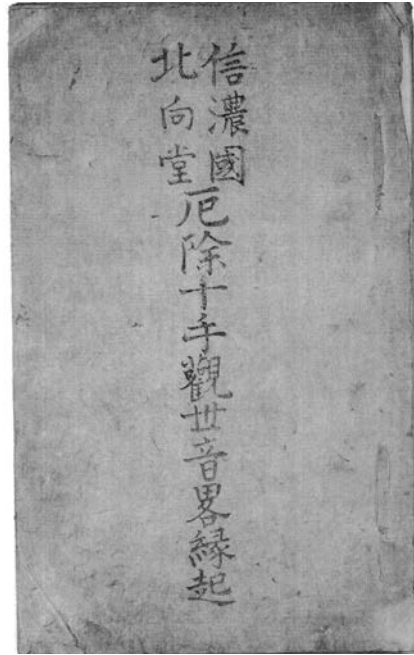 信濃國
北向堂
厄除十手觀世音畧縁起